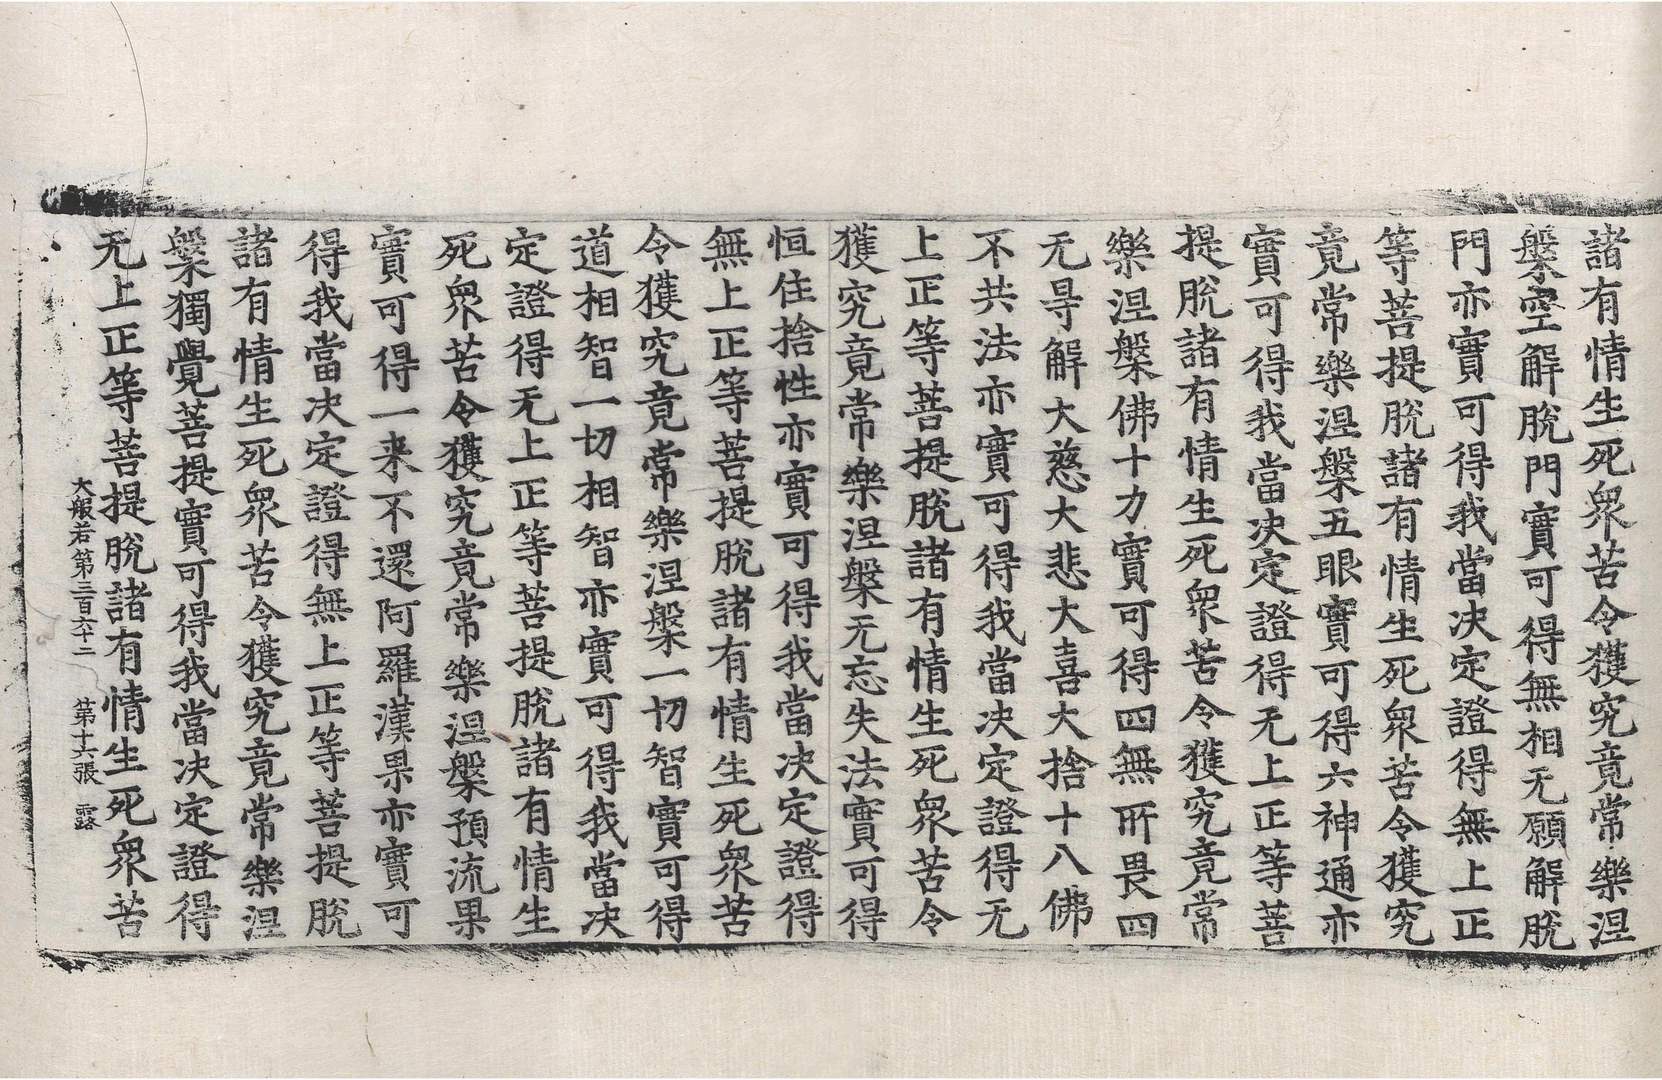 諸有情生死眾苦令獲究竟常樂涅
槃空解脫門實可得無相无願解脫
門亦實可得我當决定證得無上正
等菩提脫諸有情生死眾苦令獲究
竟常樂涅槃五眼實可得六神通亦
實可得我當决定證得无上正等菩
提脫諸有情生死眾苦令獲究竟常
樂涅槃佛十力實可得四無所畏四
无㝵解大慈大悲大喜大捨十八佛
不共法亦實可得我當决定證得无
上正等菩提脫諸有情生死眾苦令
獲究竟常樂涅槃无忘失法實可得
恒住捨性亦實可得我當决定證得
無上正等菩提脫諸有情生死眾苦
令獲究竟常樂涅槃一切智實可得
道相智一切相智亦實可得我當决
定證得无上正等菩提脫諸有情生
死眾苦令獲究竟常樂涅槃預流果
實可得一来不還阿羅漢果亦實可
得我當决定證得無上正等菩提脫
諸有情生死眾苦令獲究竟常樂涅
槃獨覺菩提實可得我當决定證得
无上正等菩提脫諸有情生死眾苦
大般若第三百六十二 第十六張 露